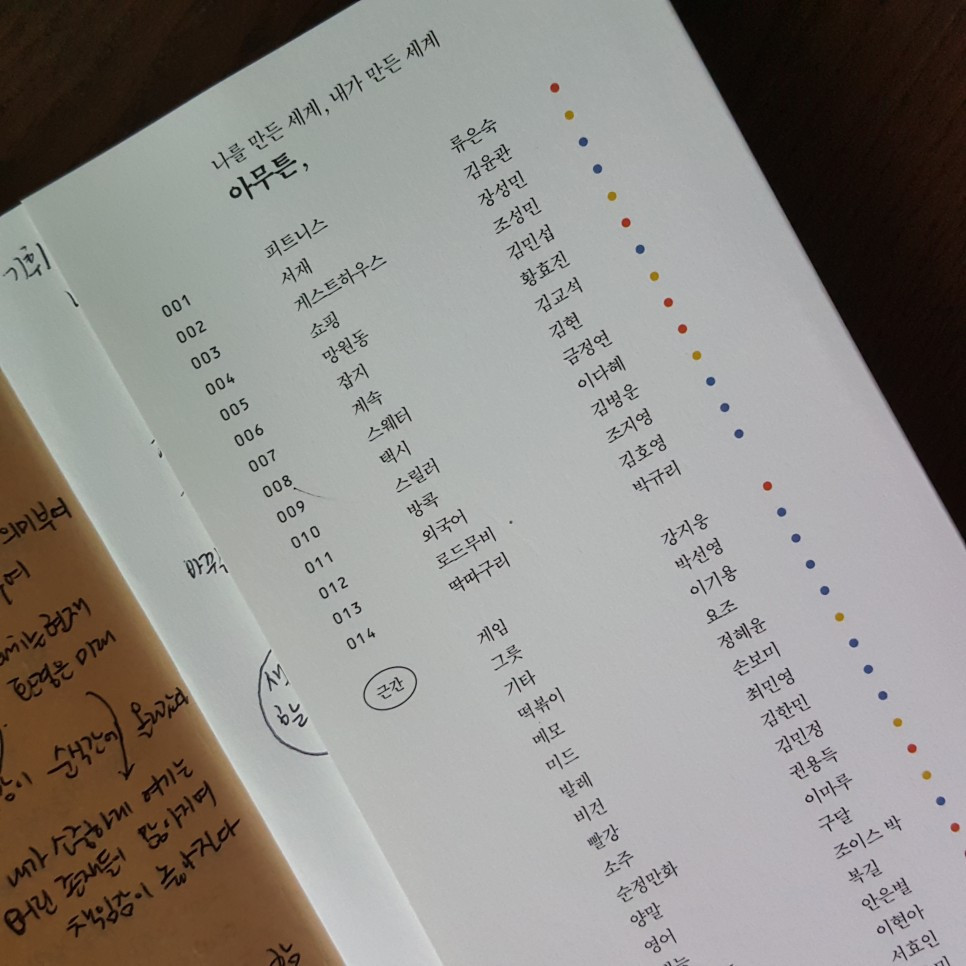 나를 만든 세계, 내가 만든 세계
아무튼,
001 피트니스 류은숙
002 서재 김윤관
003 게스트하우스 장성민
004 쇼핑 조성민
005 망원동 김민섭
006 잡지 황효진
007 계속 김교석
008 스웨터 김현
009 택시 금정연
010 스릴러 이다혜
011 방콕 김병운
012 외국어 조지영
013 로드무비 김호영
014 딱따구리 박규리
근간 게임 강지웅
그릇 박선영
기타 이기용
떡볶이 요조
메모 정혜윤
미드 손보미
발레 최민영
비건 김한민
빨강 김민정
소주 권용득
순정만화 이마루
양말 구달
영어 조이스 박
복길
안은별
이현아
서효인
의미부여
현재
미래
내가 소중하게 여기는
어린 존재들이 많아지며
책임감이 높아진다